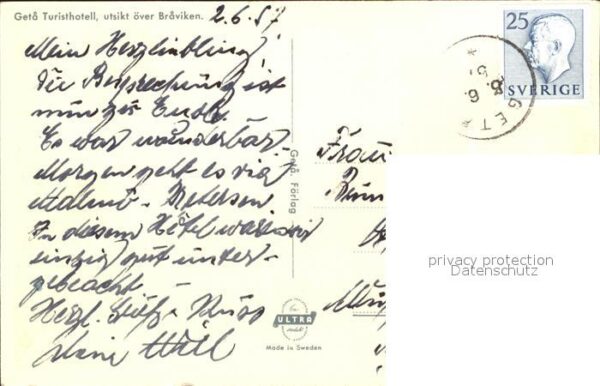 Getå Turisthotell, utsikt över Bråviken.
2.6.57
Mein Herzliebling!
Die Besprechung ist
nun zu Ende.
Es war wunderbar
Morgen geht es via
Malmö -
In diesem Hotel war ich
einzig gut unter-
gebracht
Herzl. Grüße Kuss
Dein Willi
Getå. Förlag
25
SVERIGE
GETÅ
6.
Frau
privacy protection
Datenschutz
ULTRA
Made in Sweden